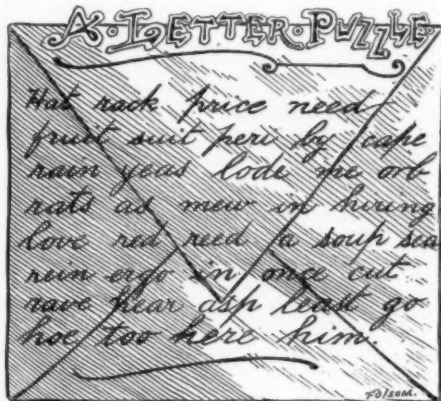 A·LETTER·PUZZLE·
Hat rack price need
fruit suit peru by cape
rain yeas lode me orb
rats as mew in hiring
love red reed a soup sea
rein ergo in once cut
rave hear asp least go
hoe too here him.
Folsom.